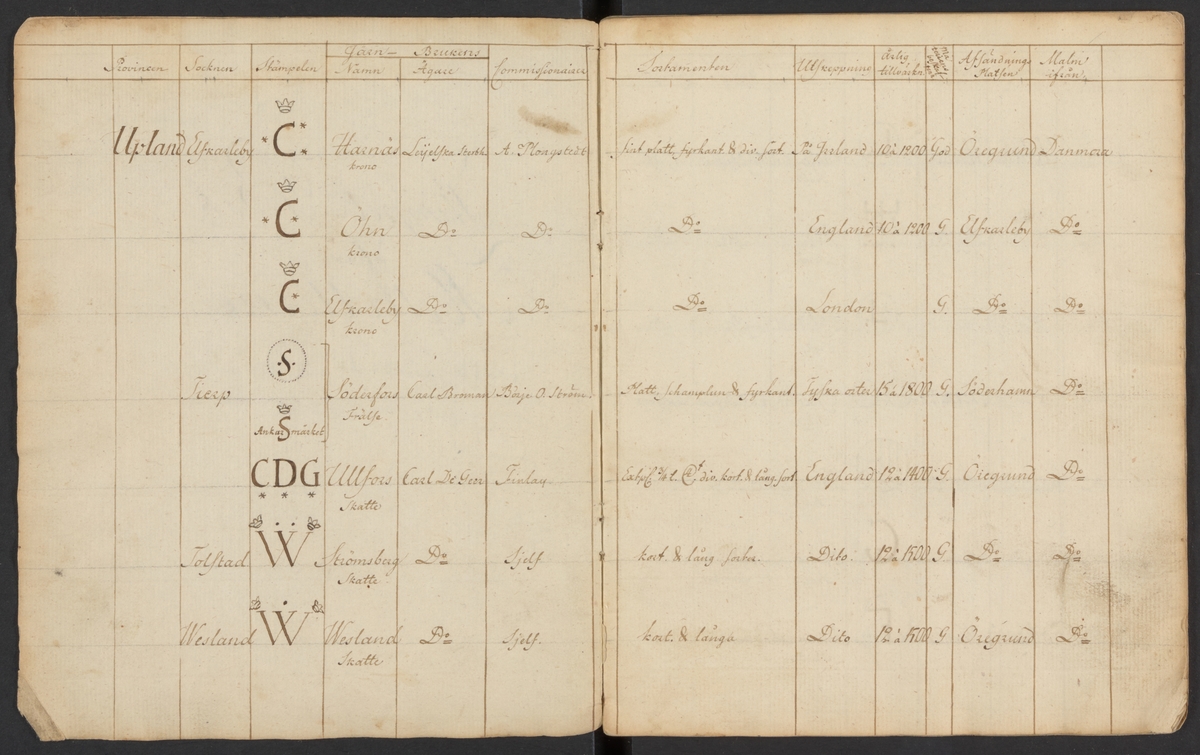 Järn- Brukens
Provincen Socknen Stämpelen Namn Ägare Commissionairer Sortamenten Utskeppning Årlig tillvärkn. Afsändnings Platsen Malm ifrån
Upland Elfkarleby C Harnäs A. Plomgstedt platt, fyrkant & div. sort. På Irrland 10 à 1200 God Öregrund Danmora
krono
C Öhn Do Do Do England 10 à 1200 G. Elfkarleby Do
krono
C Elfkarleby Do Do Do London G. Do Do
krono
·S·
Tierp Söderfors Carl Broman Börje O. Ström. Platt, schamplun & fyrkant. Tyska orter 15 à 1800 G. Söderhamn Do
Frälse
Ankar S märket
CDG Ullfors Carl De Geer Finlay div. kort. & lång. sort. England 12 à 1400 G. Öregrund Do
Skatte
Tolstad W Strömsberg Do Sjelf kort. & lång sorter. Dito. 12 à 1500 G Do Do
Skatte
Wesland W Wesland Do Sjelf. kort. & långa Dito 12 à 1500 G Öregrund Do
Skatte